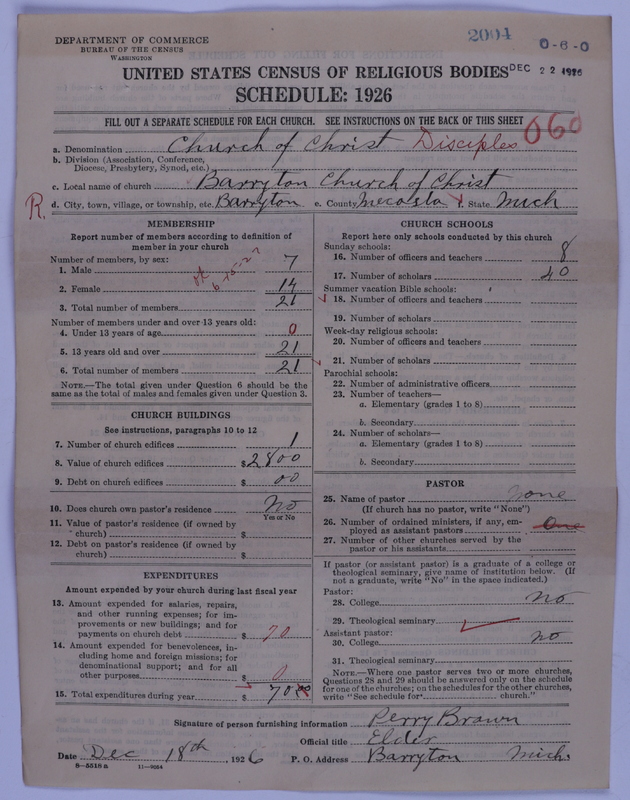 DEPARTMENT OF COMMERCE
BUREAU OF THE CENSUS
WASHINGTON
2004
0-6-0
DEC 22 1926
UNITED STATES CENSUS OF RELIGIOUS BODIES
SCHEDULE: 1926
FILL OUT A SEPARATE SCHEDULE FOR EACH CHURCH. SEE INSTRUCTIONS ON THE BACK OF THIS SHEET
060
a. Denomination Church of Christ Disciples
b. Division (Association, Conference, Diocese, Presbytery, Synod, etc.)
c. Local name of church Barryton Church of Christ
R. d. City, town, village, or township, etc. Barryton e. County Mecosta f. State Mich
MEMBERSHIP
Report number of members according to definition of
member in your church
Number of members, by sex:
1. Male 7
2. Female 14
3. Total number of members 21
ok 6-15-27
Number of members under and over 13 years old:
4. Under 13 years of age 0
5. 13 years old and over 21
6. Total number of members 21
NOTE.—The total given under Question 6 should be the
same as the total of males and females given under Question 3.
CHURCH BUILDINGS
See instructions, paragraphs 10 to 12
7. Number of church edifices 1
8. Value of church edifices $2800
9. Debt on church edifices $ 00
10. Does church own pastor's residence No
Yes or No
11. Value of pastor's residence (if owned by
church) $
12. Debt on pastor's residence (if owned by
church) $
EXPENDITURES
Amount expended by your church during last fiscal year
13. Amount expended for salaries, repairs,
and other running expenses; for im-
provements or new buildings; and for
payments on church debt $ 70
14. Amount expended for benevolences, in-
cluding home and foreign missions; for
denominational support; and for all
other purposes $ 0
15. Total expenditures during year $ 70
CHURCH SCHOOLS
Report here only schools conducted by this church
Sunday schools:
16. Number of officers and teachers 8
17. Number of scholars 40
Summer vacation Bible schools:
18. Number of officers and teachers
19. Number of scholars
Week-day religious schools:
20. Number of officers and teachers
21. Number of scholars
Parochial schools:
22. Number of administrative officers
23. Number of teachers—
a. Elementary (grades 1 to 8)
b. Secondary
24. Number of scholars—
a. Elementary (grades 1 to 8)
b. Secondary
PASTOR
25. Name of pastor none
(If church has no pastor, write "None")
26. Number of ordained ministers, if any, em-
ployed as assistant pastors One
27. Number of other churches served by the
pastor or his assistants
If pastor (or assistant pastor) is a graduate of a college or
theological seminary, give name of institution below. (If
not a graduate, write "No" in the space indicated.)
Pastor:
28. College no
29. Theological seminary
Assistant pastor:
30. College no
31. Theological seminary
NOTE.—Where one pastor serves two or more churches,
Questions 28 and 29 should be answered only on the schedule
for one of the churches; on the schedules for the other churches,
write "See schedule for church."
Signature of person furnishing information Perry Brown
Official title Elder
Date Dec 18th, 1926 P. O. Address Barryton Mich.
8-5518 a 11-9864